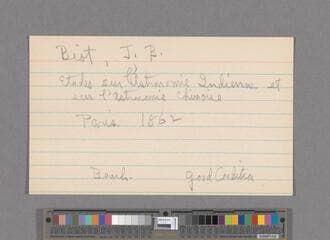 Biot, J. B.
Etudes sur l'Astronomie Indienne et
sur l'astronomie chinoise
Paris 1862
Good Condition